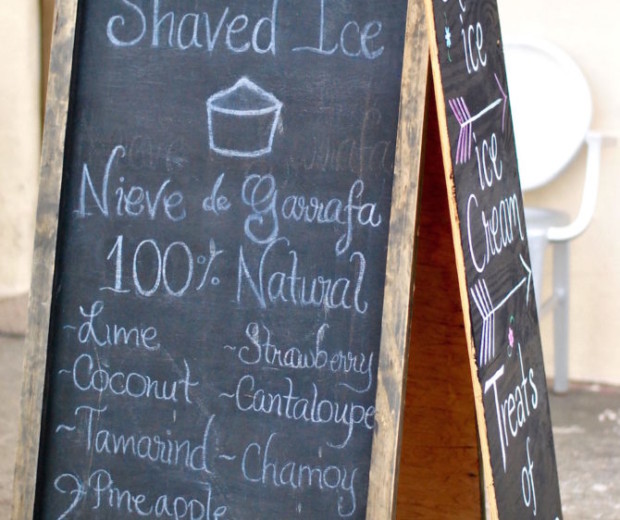 Shaved Ice
Nieve de Garrafa
100% Natural
~Lime
~Strawberry
~Coconut
~Cantaloupe
~Tamarind
~Chamoy
Pineapple
ice
ice
Cream
Treats
of